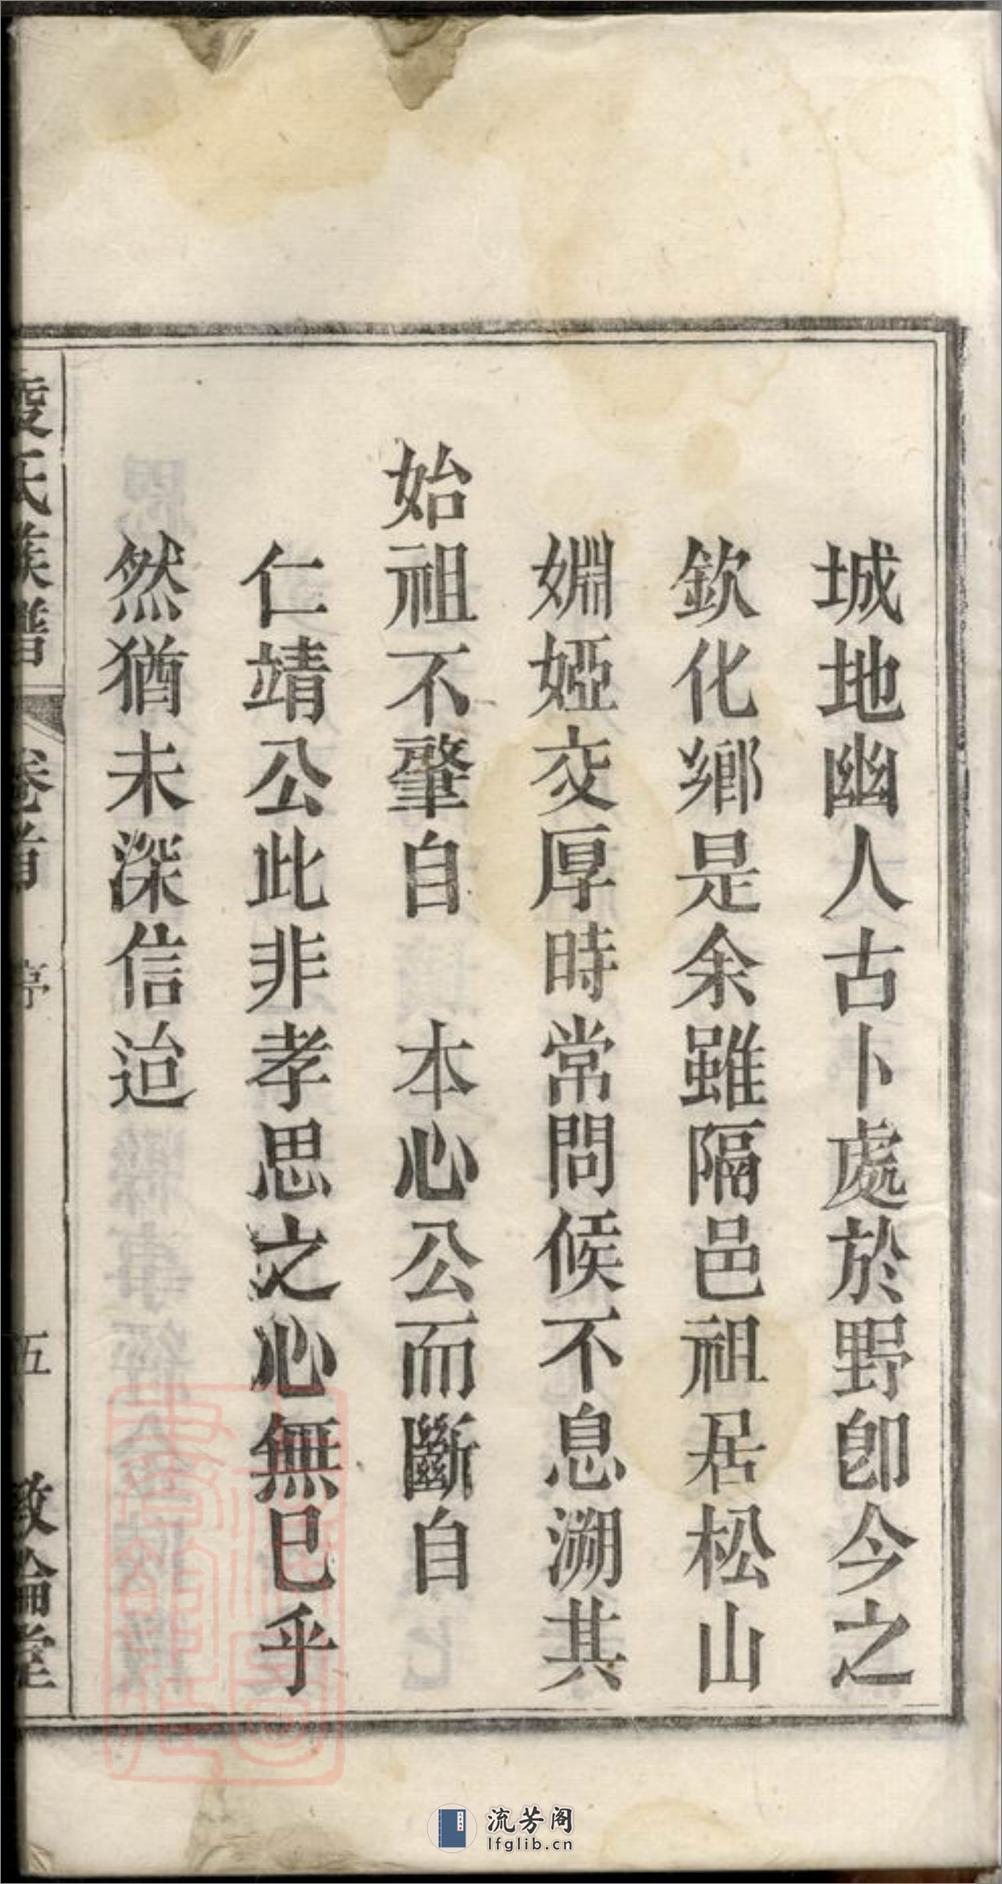 城地幽人古卜處於野卽今之
欽化鄉是余雖隔邑祖居松山
婣婭交厚時常問候不息溯其
始祖不肇自　本心公而斷自
仁靖公此非孝思之心無已乎
然猶未深信迨
氏族譜　卷首　序　五　敦倫堂
流芳阁
lfglib.cn